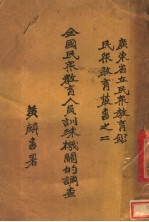 廣東省立民衆教育館
民衆教育叢書之二
全國民衆教育人員訓練機關的調查
黃麟書署